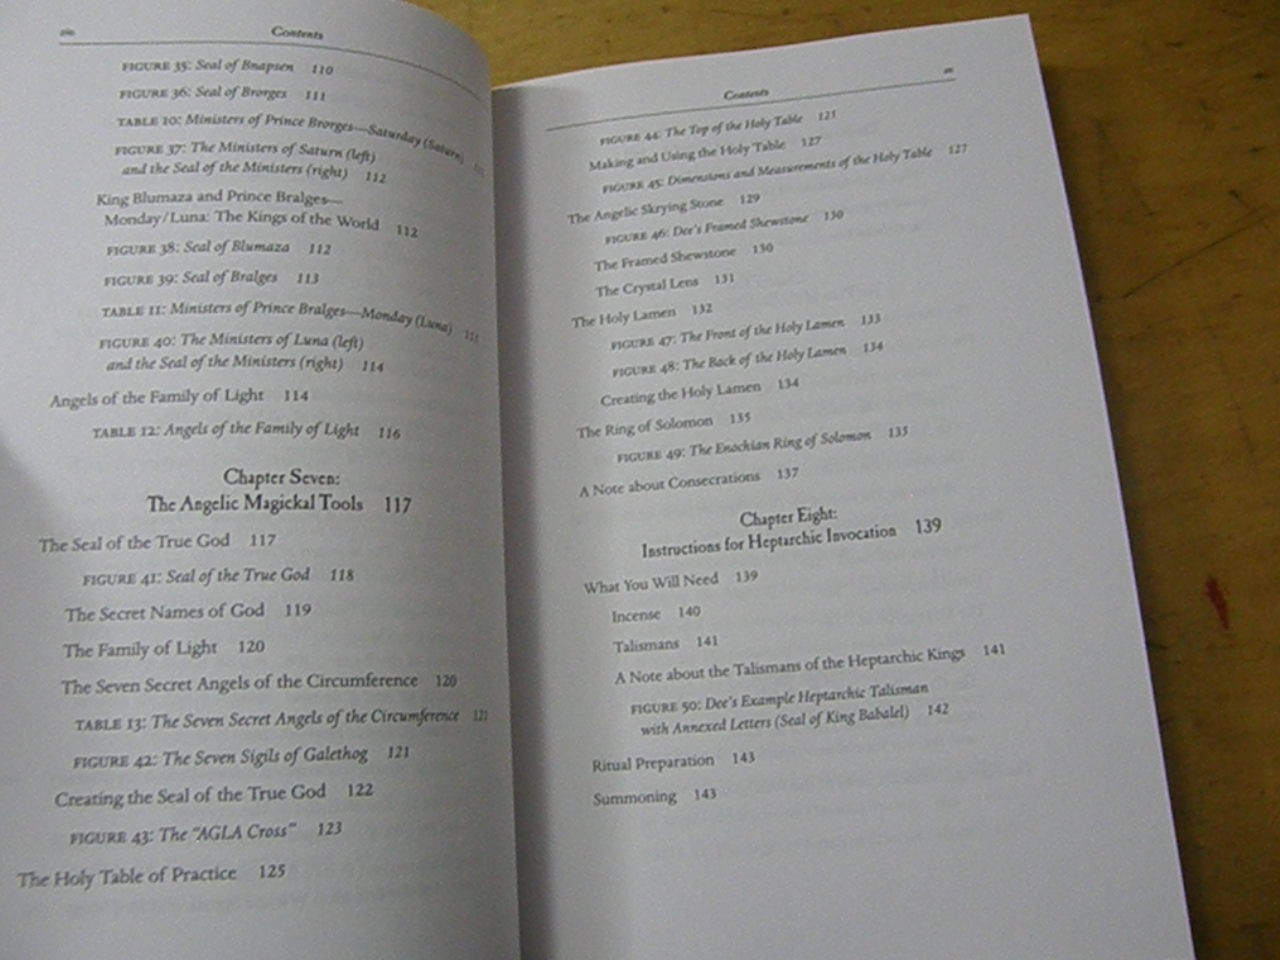 Contents
FIGURE 35: Seal of Bnapsen 110
FIGURE 36: Seal of Brorges 111
TABLE 10: Ministers of Prince Brorges—Saturday (Saturn)
FIGURE 37: The Ministers of Saturn (left)
and the Seal of the Ministers (right) 112
King Blumaza and Prince Bralges—
Monday/Luna: The Kings of the World 112
FIGURE 38: Seal of Blumaza 112
FIGURE 39: Seal of Bralges 113
TABLE 11: Ministers of Prince Bralges—Monday (Luna)
FIGURE 40: The Ministers of Luna (left)
and the Seal of the Ministers (right) 114
Angels of the Family of Light 114
TABLE 12: Angels of the Family of Light 116
Chapter Seven:
The Angelic Magickal Tools 117
The Seal of the True God 117
FIGURE 41: Seal of the True God 118
The Secret Names of God 119
The Family of Light 120
The Seven Secret Angels of the Circumference 120
TABLE 13: The Seven Secret Angels of the Circumference 121
FIGURE 42: The Seven Sigils of Galethog 121
Creating the Seal of the True God 122
FIGURE 43: The “AGLA Cross” 123
The Holy Table of Practice 125
Contents
FIGURE 44: The Top of the Holy Table 125
Making and Using the Holy Table 127
FIGURE 45: Dimensions and Measurements of the Holy Table 127
The Angelic Skrying Stone 129
FIGURE 46: Dee's Framed Shewstone 130
The Framed Shewstone 130
The Crystal Lens 131
The Holy Lamen 132
FIGURE 47: The Front of the Holy Lamen 133
FIGURE 48: The Back of the Holy Lamen 134
Creating the Holy Lamen 134
The Ring of Solomon 135
FIGURE 49: The Enochian Ring of Solomon 135
A Note about Consecrations 137
Chapter Eight:
Instructions for Heptarchic Invocation 139
What You Will Need 139
Incense 140
Talismans 141
A Note about the Talismans of the Heptarchic Kings 141
FIGURE 50: Dee's Example Heptarchic Talisman
with Annexed Letters (Seal of King Babalel) 142
Ritual Preparation 143
Summoning 143